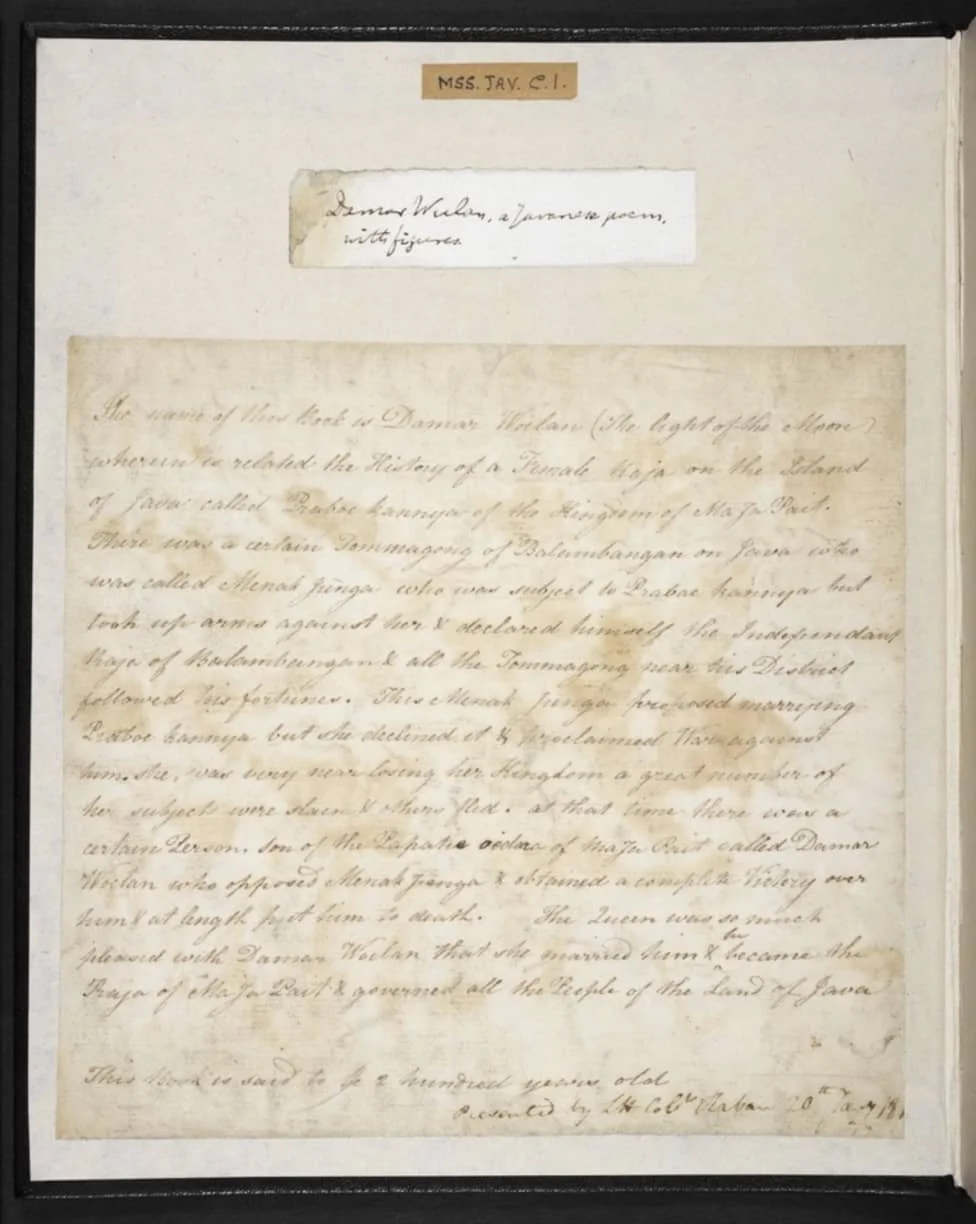 MSS. JAV. C.1.
Damar Wulan, a Javanese poem,
with figures
The name of this Book is Damar Woelan (The light of the Moon)
wherein is related the History of a Female Raja on the Island
of Java called Praboe kannya of the Kingdom of MaJa Pait.
There was a certain Tommagong of Balambangan on Java who
was called Menak Junga who was subject to Praboe kannya but
took up arms against her & declared himself the Independant
Raja of Balambangan & all the Tommagong near his District
followed his fortunes. This Menak Junga proposed marrying
Praboe kannya but she declined it & proclaimed War against
him. she, was very near losing her Kingdom a great number of
her subjects were slain & others fled. at that time there was a
certain Person, son of the of MaJa Pait called Damar
Woelan who opposed Menak Junga & obtained a complete Victory over
him & at length put him to death. The Queen was so much
pleased with Damar Woelan that she married him & he became the
Raja of MaJa Pait & governed all the People of the Land of Java
This Book is said to be 2 hundred years old
Presented by Lt Coll Raban 20th